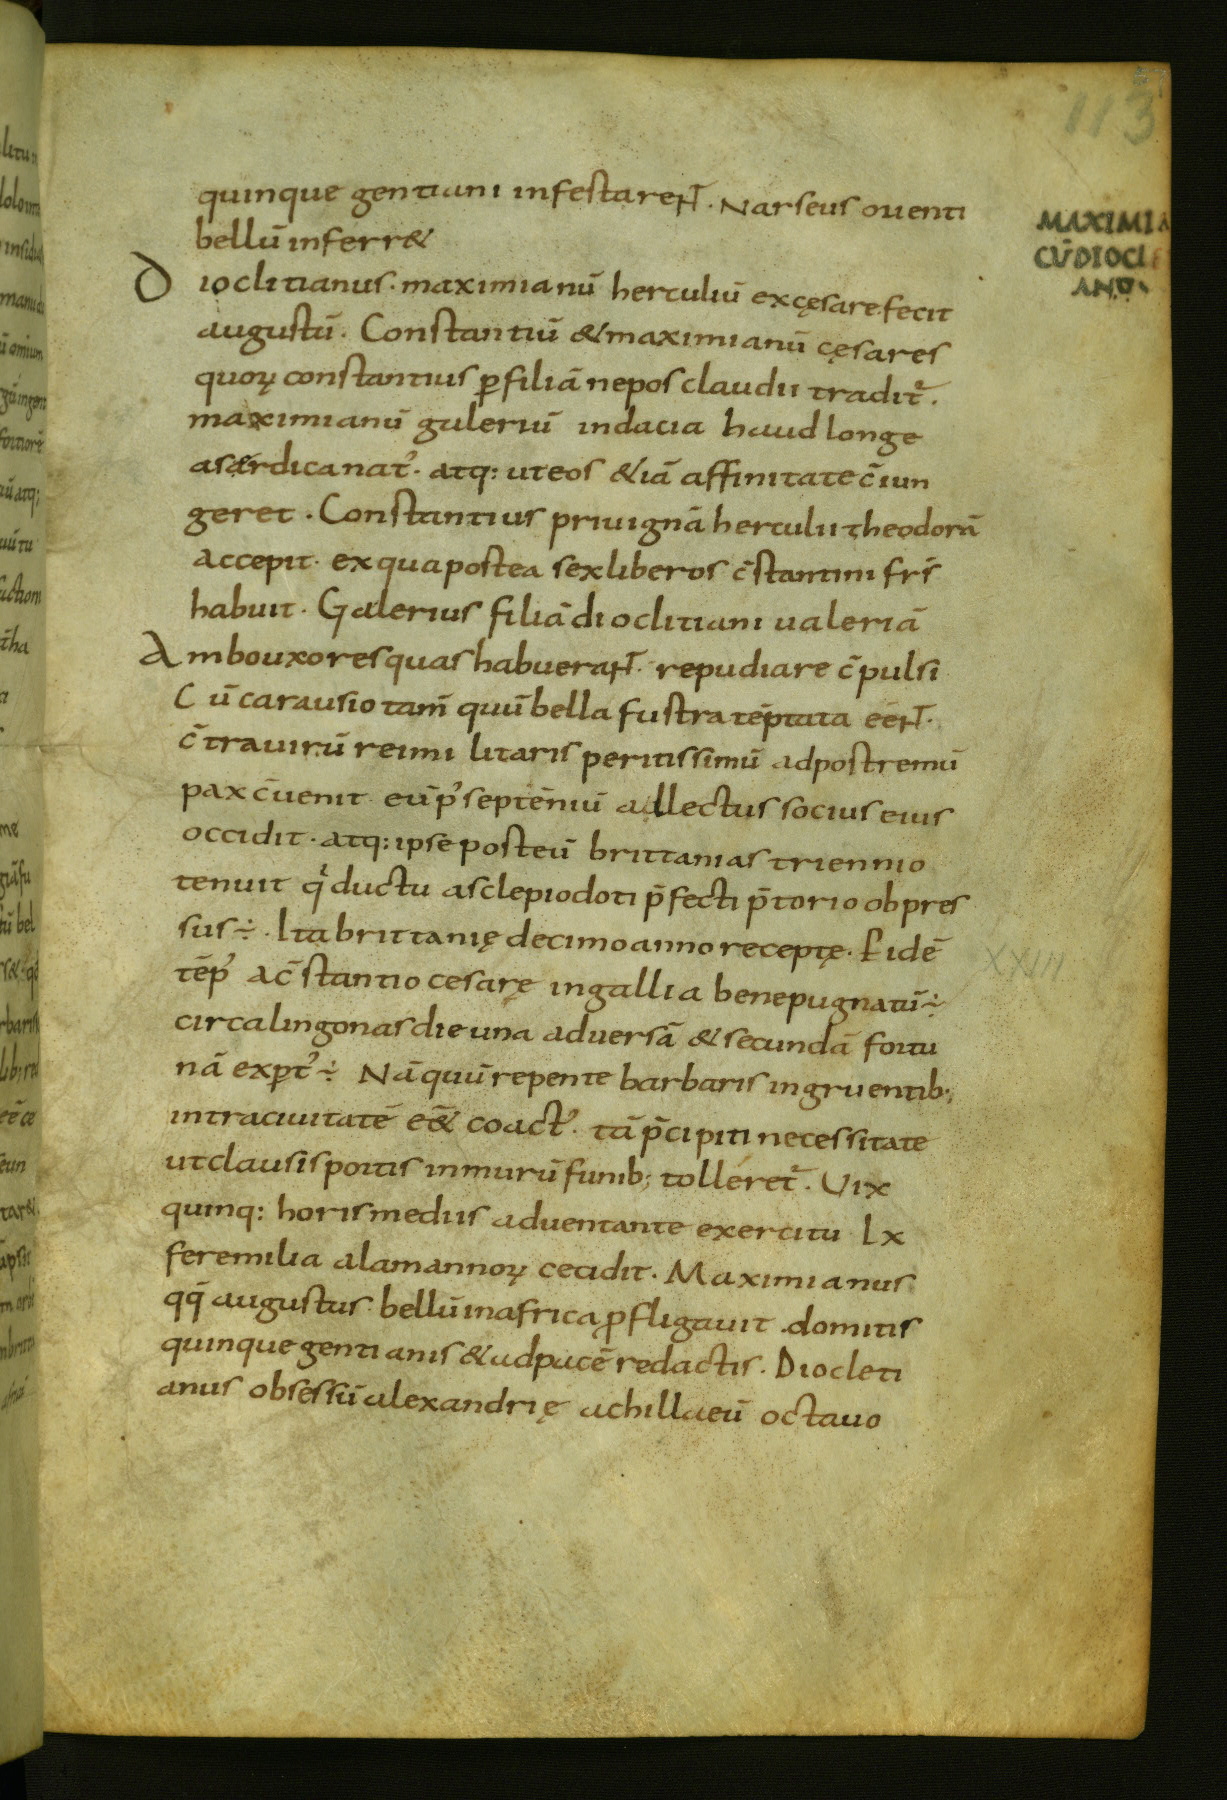 113
quinque gentiani infestareNT. Narseus orienti
MAXIMIA
CŪ DIOCLE
ANO.
bellū inferr&
Dioclitianus. maximianū herculiū excęsare fecit
augustū. Constantiū & maximianū cęsares
quoꝝ constantius ꝑ filiā nepos claudii tradit᷑.
maximianū galeriū indacia haud longe
asærdica nat᷒. atq: ut eos &iā affinitate c̄iun
geret. Constantius priuignā herculii theodorā
accepit. ex qua postea sex liberos c̄stantini fr̄s
habuit. Galerius filiā dioclitiani ualeriā
Ambo uxores quas habueraNT. repudiare c̄pulsi
Cū carausio tam̄ quū bella fustra tēptata eēNT.
c̄tra uirū rei militaris peritissimū ad postremū
pax c̄uenit eū p᷒ septēniū allectus socius eius
occidit. atq: ipse post eū brittanias triennio
tenuit qͥ ductu asclepiodoti p̄fecti p̄torio obpres
sus ÷. Ita brittanię decimo anno receptę. Eidē
XXIII
tēp᷒ ac̄stantio cesarę ingallia bene pugnatū ÷
circa lingonas die una aduersā & secundā fortu
nā exꝑt᷒ ÷ Nā quū repente barbaris ingruentib;
intra ciuitatē eē& coact᷒. tā p̄cipiti necessitate
ut clausis portis in murū funib; tolleret᷑. Uix
quinq: horis mediis aduentante exercitu Lx
fere milia alamannoꝝ cecidit. Maximianus
qq̄ augustus bellū in africa ꝓfligauit. domitis
quinque gentianis & ad pacē redactis. Diocleti
anus obsessū alexandrię achillaeū octauo